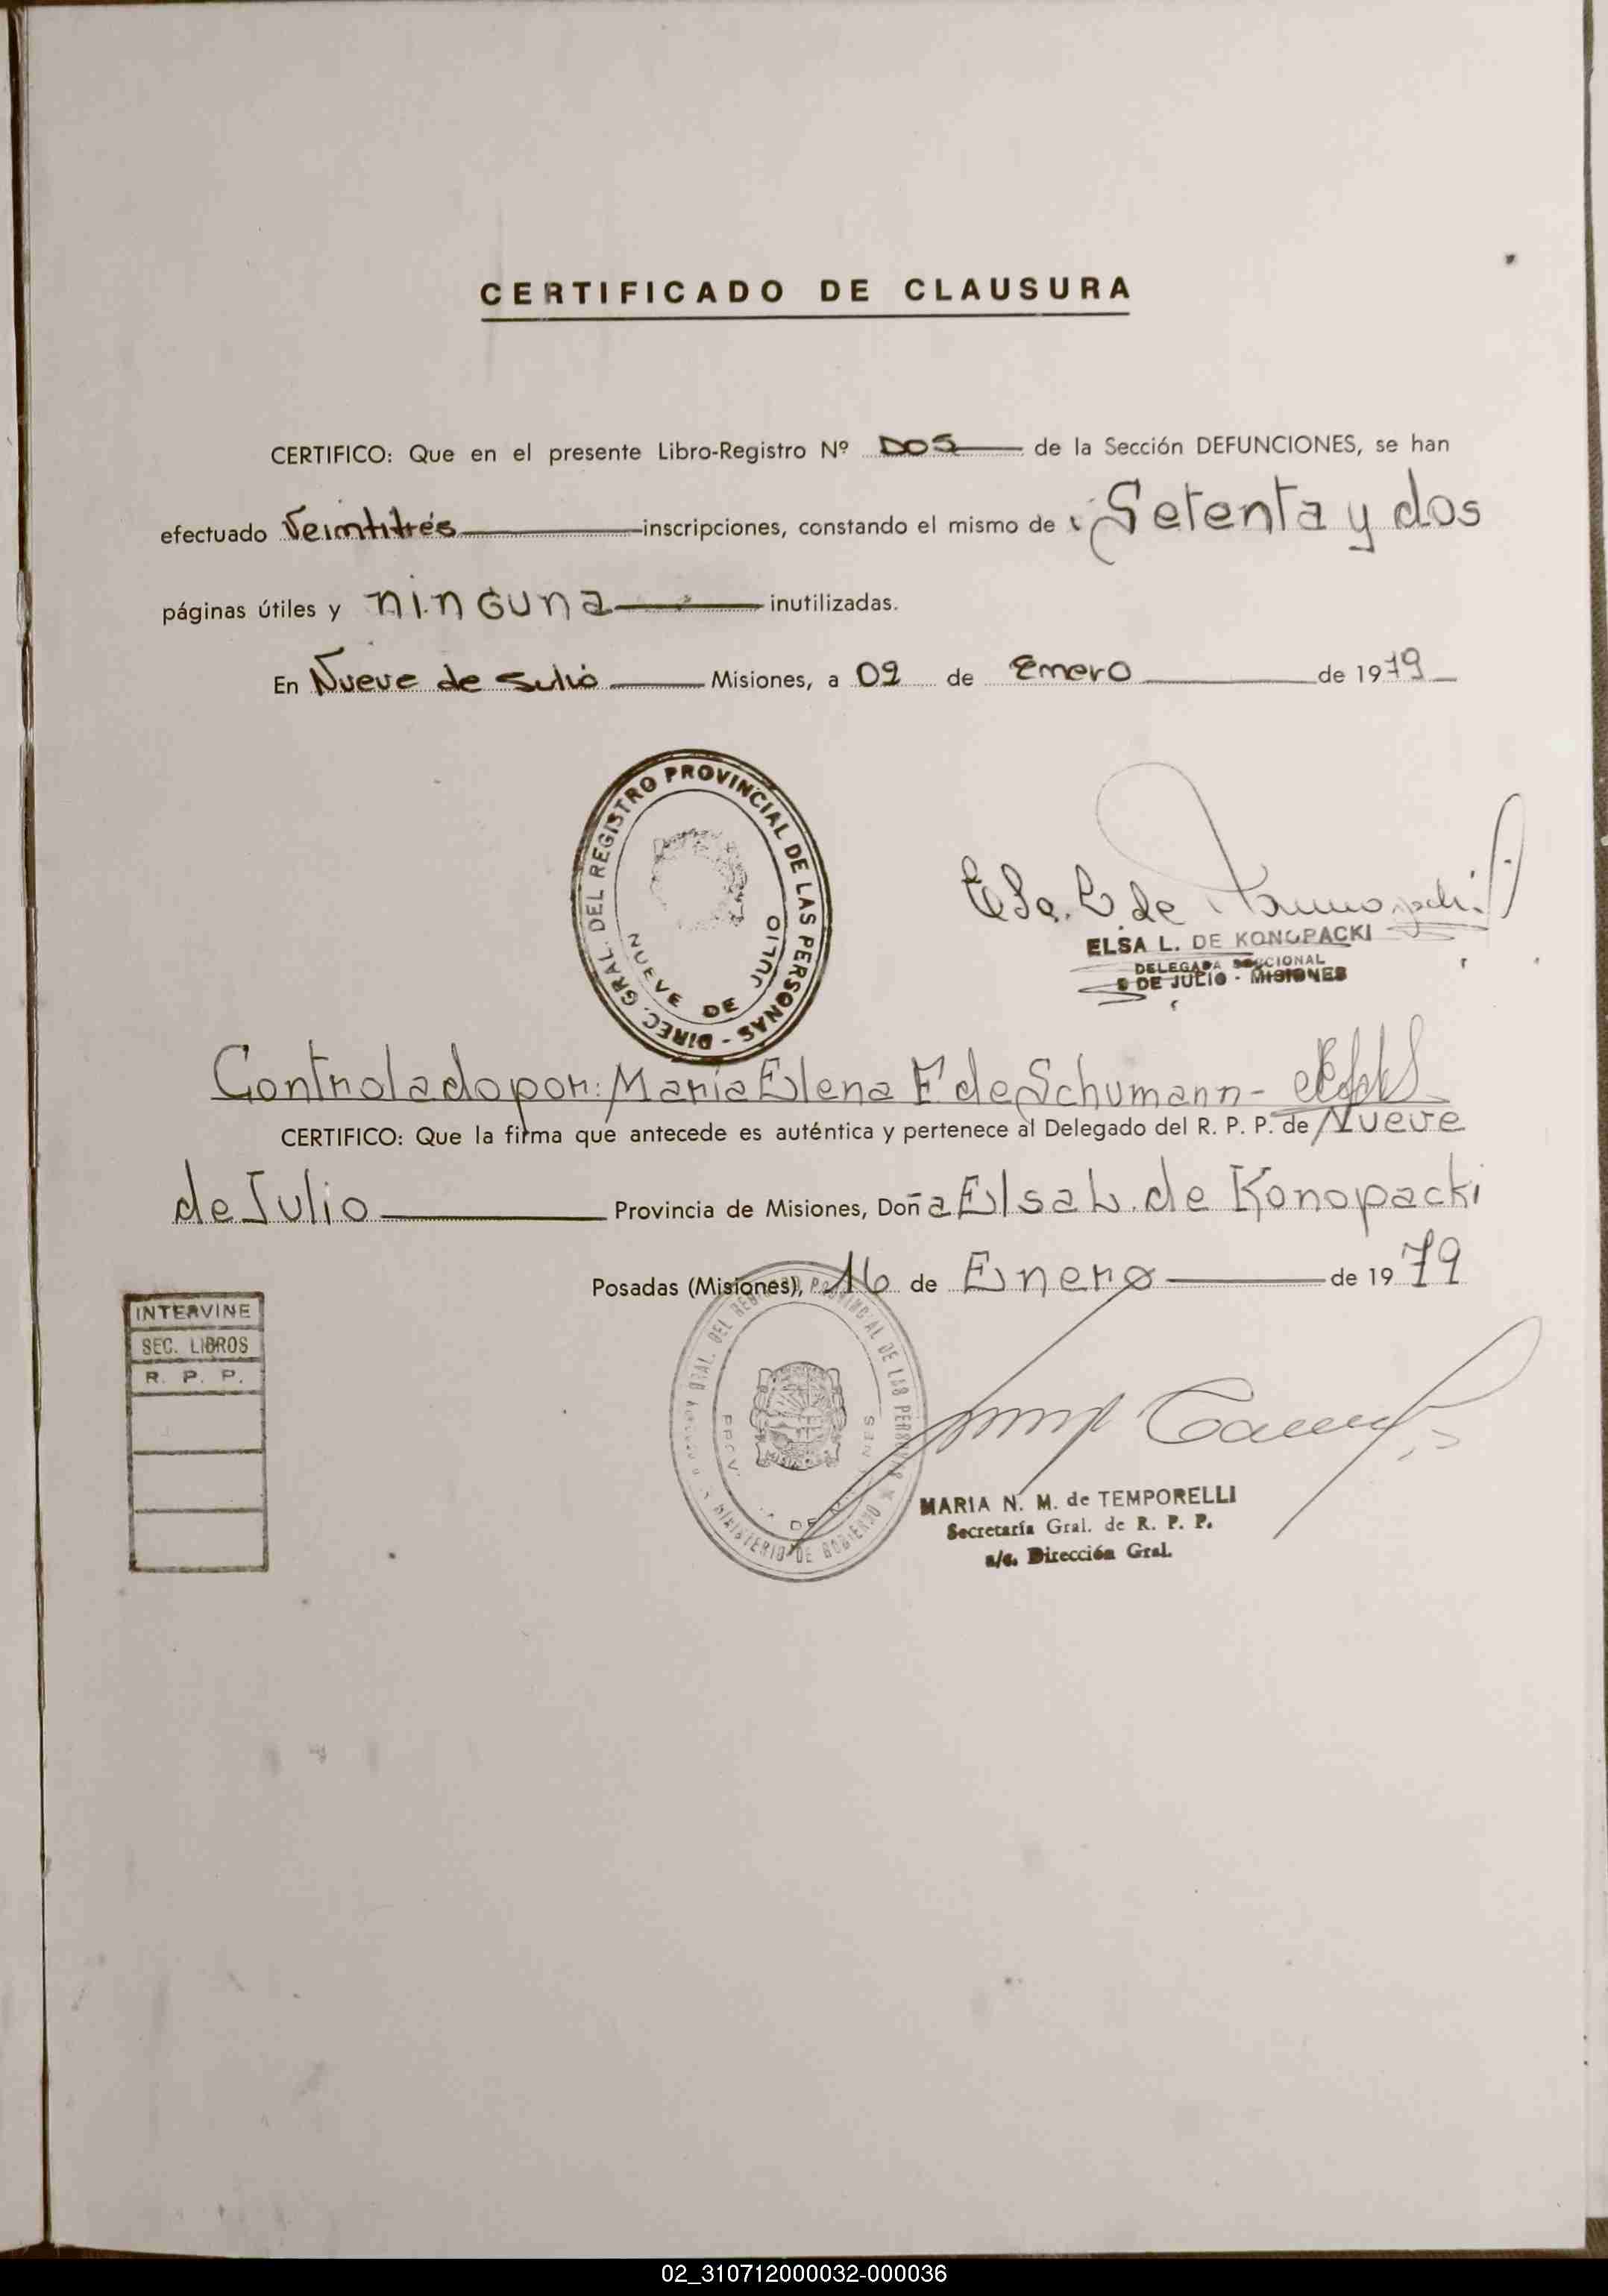 CERTIFICADO DE CLAUSURA
CERTIFICO: Que en el presente Libro-Registro Nº DOS de la Sección DEFUNCIONES, se han
efectuado Veintitrés inscripciones, constando el mismo de Setenta y dos
páginas útiles y ninguna inutilizadas.
En Nueve de Julio Misiones, a 02 de Enero de 1979
DIREC. GRAL. DEL REGISTRO PROVINCIAL DE LAS PERSONAS -
NUEVE DE JULIO
Elsa L de Konopacki
ELSA L. DE KONOPACKI
DELEGADA SECCIONAL
9 DE JULIO - MISIONES
Controlado por: María Elena F. de Schumann-
CERTIFICO: Que la firma que antecede es auténtica y pertenece al Delegado del R. P. P. de Nueve
de Julio Provincia de Misiones, Doña Elsa L. de Konopacki
Posadas (Misiones), 16 de Enero de 1979
INTERVINE
SEC. LIBROS
R. P. P.
GRAL. DEL REGISTRO PROVINCIAL DE LAS PERSONAS
MINISTERIO DE GOBIERNO
PROV. DE MISIONES
MARIA N. M. de TEMPORELLI
Secretaría Gral. de R. P. P.
a/c. Dirección Gral.
02_310712000032-000036